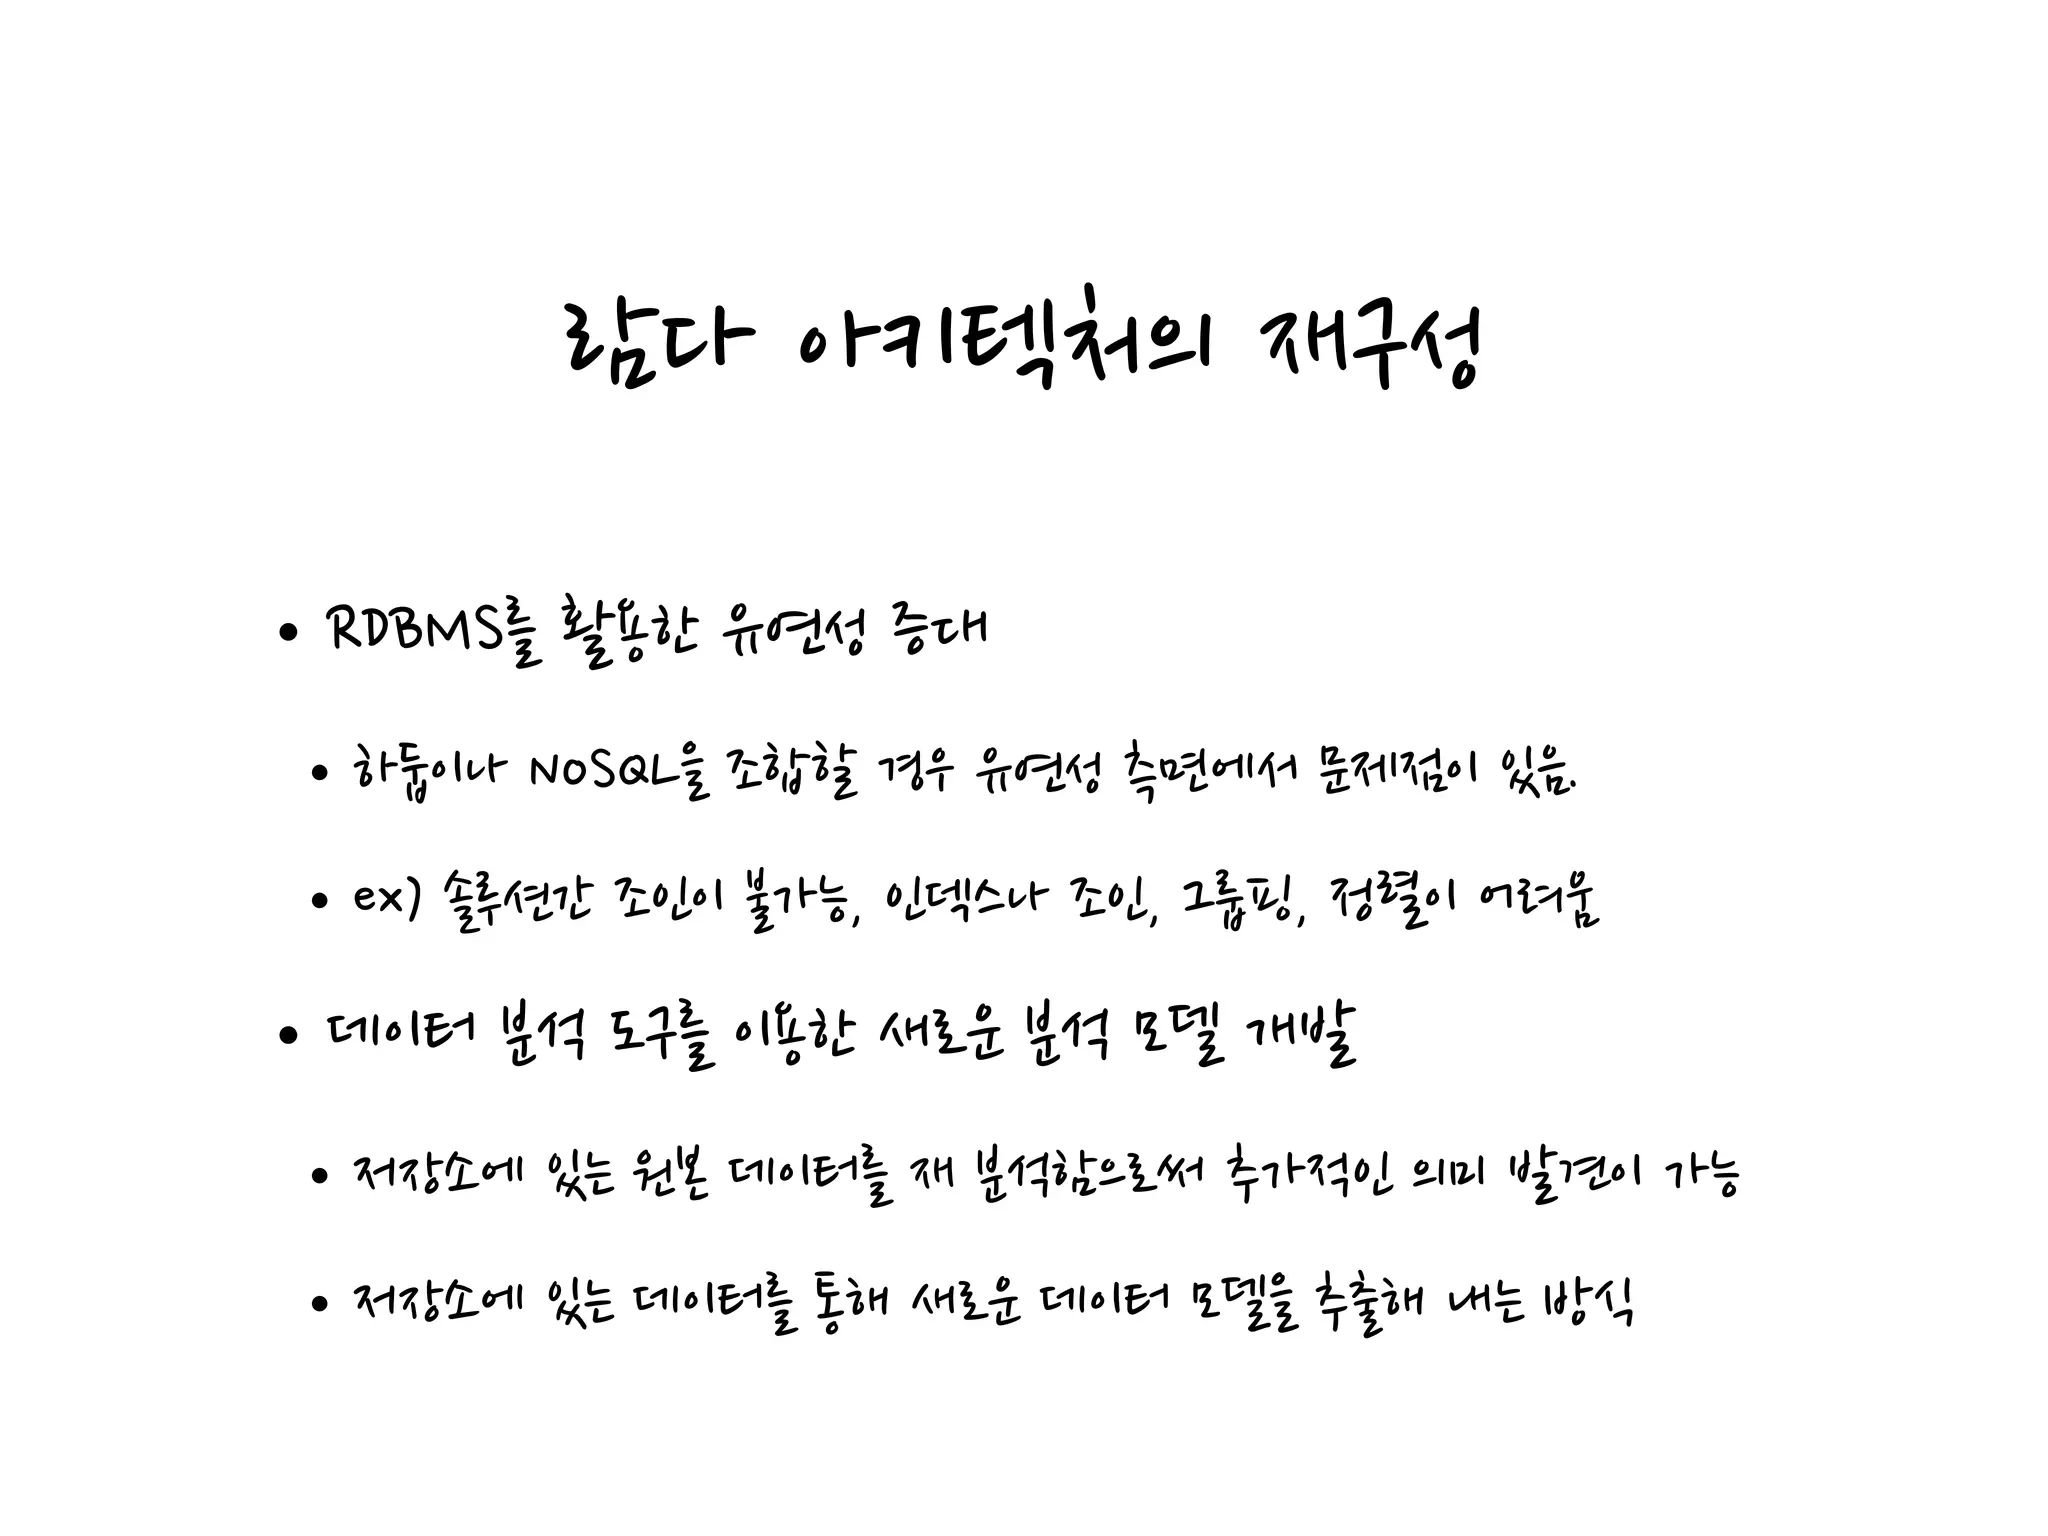 람다 아키텍처의 재구성
• RDBMS를 활용한 유연성 증대
• 하둡이나 NoSQL을 조합할 경우 유연성 측면에서 문제점이 있음.
• ex) 솔루션간 조인이 불가능, 인덱스나 조인, 그룹핑, 정렬이 어려움
• 데이터 분석 도구를 이용한 새로운 분석 모델 개발
• 저장소에 있는 원본 데이터를 재 분석함으로써 추가적인 의미 발견이 가능
• 저장소에 있는 데이터를 통해 새로운 데이터 모델을 추출해 내는 방식